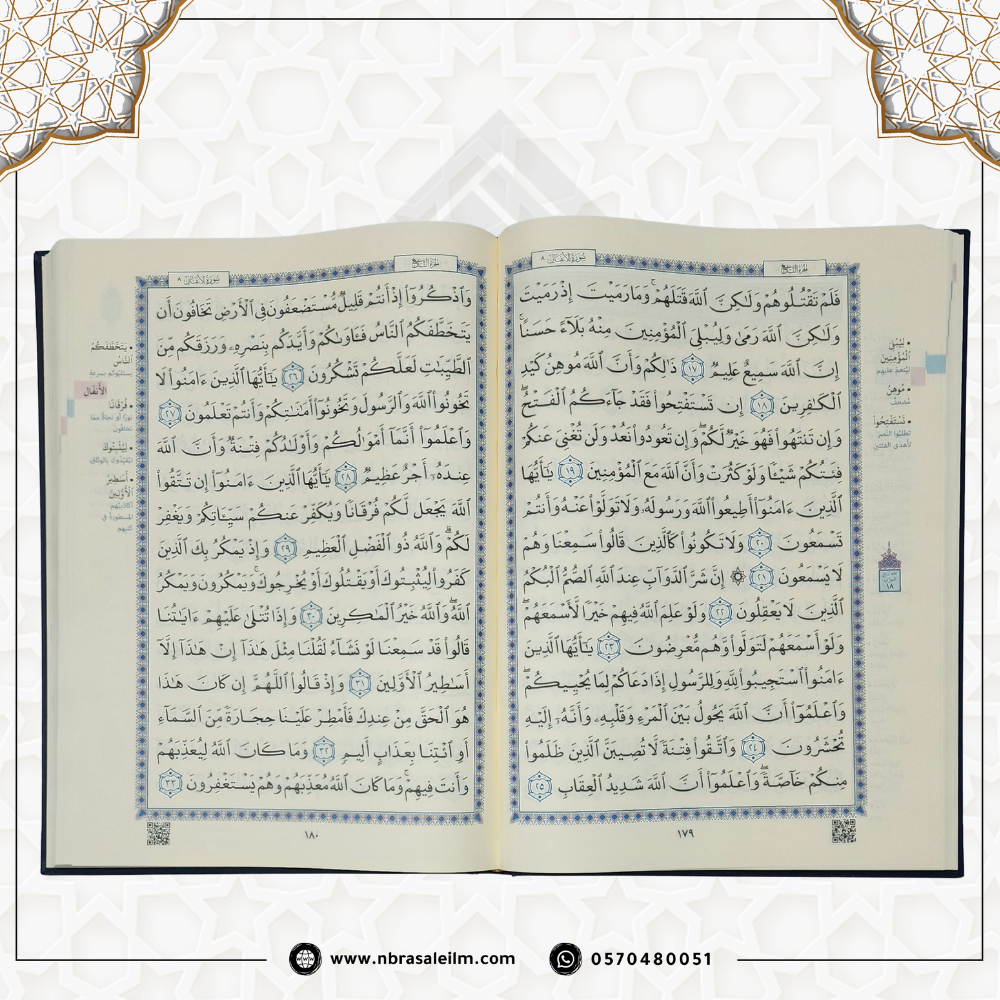 الجزء التاسع
سورة الأنفال ٨
فَلَمْ تَقْتُلُوهُمْ وَلَٰكِنَّ ٱللَّهَ قَتَلَهُمْ ۚ وَمَا رَمَيْتَ إِذْ رَمَيْتَ
وَلَٰكِنَّ ٱللَّهَ رَمَىٰ وَلِيُبْلِىَ ٱلْمُؤْمِنِينَ مِنْهُ بَلَآءً حَسَنًا ۚ
إِنَّ ٱللَّهَ سَمِيعٌ عَلِيمٌ ١٧ ذَٰلِكُمْ وَأَنَّ ٱللَّهَ مُوهِنُ كَيْدِ
ٱلْكَٰفِرِينَ ١٨ إِن تَسْتَفْتِحُوا۟ فَقَدْ جَآءَكُمُ ٱلْفَتْحُ ۖ
وَإِن تَنتَهُوا۟ فَهُوَ خَيْرٌ لَّكُمْ ۖ وَإِن تَعُودُوا۟ نَعُدْ وَلَن تُغْنِىَ عَنكُمْ
فِئَتُكُمْ شَيْـًٔا وَلَوْ كَثُرَتْ وَأَنَّ ٱللَّهَ مَعَ ٱلْمُؤْمِنِينَ ١٩ يَٰٓأَيُّهَا
ٱلَّذِينَ ءَامَنُوٓا۟ أَطِيعُوا۟ ٱللَّهَ وَرَسُولَهُۥ وَلَا تَوَلَّوْا۟ عَنْهُ وَأَنتُمْ
تَسْمَعُونَ ٢٠ وَلَا تَكُونُوا۟ كَٱلَّذِينَ قَالُوا۟ سَمِعْنَا وَهُمْ
لَا يَسْمَعُونَ ٢١ ۞ إِنَّ شَرَّ ٱلدَّوَآبِّ عِندَ ٱللَّهِ ٱلصُّمُّ ٱلْبُكْمُ
ٱلَّذِينَ لَا يَعْقِلُونَ ٢٢ وَلَوْ عَلِمَ ٱللَّهُ فِيهِمْ خَيْرًا لَّأَسْمَعَهُمْ ۖ
وَلَوْ أَسْمَعَهُمْ لَتَوَلَّوا۟ وَّهُم مُّعْرِضُونَ ٢٣ يَٰٓأَيُّهَا ٱلَّذِينَ
ءَامَنُوا۟ ٱسْتَجِيبُوا۟ لِلَّهِ وَلِلرَّسُولِ إِذَا دَعَاكُمْ لِمَا يُحْيِيكُمْ ۖ
وَٱعْلَمُوٓا۟ أَنَّ ٱللَّهَ يَحُولُ بَيْنَ ٱلْمَرْءِ وَقَلْبِهِۦ وَأَنَّهُۥٓ إِلَيْهِ
تُحْشَرُونَ ٢٤ وَٱتَّقُوا۟ فِتْنَةً لَّا تُصِيبَنَّ ٱلَّذِينَ ظَلَمُوا۟
مِنكُمْ خَآصَّةً ۖ وَٱعْلَمُوٓا۟ أَنَّ ٱللَّهَ شَدِيدُ ٱلْعِقَابِ ٢٥
١٧٩
لِيُبْلِيَ
الْمُؤْمِنِينَ
مُوهِنُ
تَسْتَفْتِحُوا
١٨
الجزء التاسع
سورة الأنفال ٨
وَٱذْكُرُوٓا۟ إِذْ أَنتُمْ قَلِيلٌ مُّسْتَضْعَفُونَ فِى ٱلْأَرْضِ تَخَافُونَ أَن
يَتَخَطَّفَكُمُ ٱلنَّاسُ فَـَٔاوَىٰكُمْ وَأَيَّدَكُم بِنَصْرِهِۦ وَرَزَقَكُم مِّنَ
ٱلطَّيِّبَٰتِ لَعَلَّكُمْ تَشْكُرُونَ ٢٦ يَٰٓأَيُّهَا ٱلَّذِينَ ءَامَنُوا۟ لَا
تَخُونُوا۟ ٱللَّهَ وَٱلرَّسُولَ وَتَخُونُوٓا۟ أَمَٰنَٰتِكُمْ وَأَنتُمْ تَعْلَمُونَ ٢٧
وَٱعْلَمُوٓا۟ أَنَّمَآ أَمْوَٰلُكُمْ وَأَوْلَٰدُكُمْ فِتْنَةٌ وَأَنَّ ٱللَّهَ
عِندَهُۥٓ أَجْرٌ عَظِيمٌ ٢٨ يَٰٓأَيُّهَا ٱلَّذِينَ ءَامَنُوٓا۟ إِن تَتَّقُوا۟
ٱللَّهَ يَجْعَل لَّكُمْ فُرْقَانًا وَيُكَفِّرْ عَنكُمْ سَيِّـَٔاتِكُمْ وَيَغْفِرْ
لَكُمْ ۗ وَٱللَّهُ ذُو ٱلْفَضْلِ ٱلْعَظِيمِ ٢٩ وَإِذْ يَمْكُرُ بِكَ ٱلَّذِينَ
كَفَرُوا۟ لِيُثْبِتُوكَ أَوْ يَقْتُلُوكَ أَوْ يُخْرِجُوكَ ۚ وَيَمْكُرُونَ وَيَمْكُرُ
ٱللَّهُ ۖ وَٱللَّهُ خَيْرُ ٱلْمَٰكِرِينَ ٣٠ وَإِذَا تُتْلَىٰ عَلَيْهِمْ ءَايَٰتُنَا
قَالُوا۟ قَدْ سَمِعْنَا لَوْ نَشَآءُ لَقُلْنَا مِثْلَ هَٰذَآ إِنْ هَٰذَآ إِلَّآ
أَسَٰطِيرُ ٱلْأَوَّلِينَ ٣١ وَإِذْ قَالُوا۟ ٱللَّهُمَّ إِن كَانَ هَٰذَا
هُوَ ٱلْحَقَّ مِنْ عِندِكَ فَأَمْطِرْ عَلَيْنَا حِجَارَةً مِّنَ ٱلسَّمَآءِ
أَوِ ٱئْتِنَا بِعَذَابٍ أَلِيمٍ ٣٢ وَمَا كَانَ ٱللَّهُ لِيُعَذِّبَهُمْ
وَأَنتَ فِيهِمْ ۚ وَمَا كَانَ ٱللَّهُ مُعَذِّبَهُمْ وَهُمْ يَسْتَغْفِرُونَ ٣٣
١٨٠
يَتَخَطَّفَكُمُ
النَّاسُ
الأنفال
فُرْقَانًا
لِيُثْبِتُوكَ
أَسَاطِيرُ
الأَوَّلِينَ
www.nbrasaleilm.com
0570480051